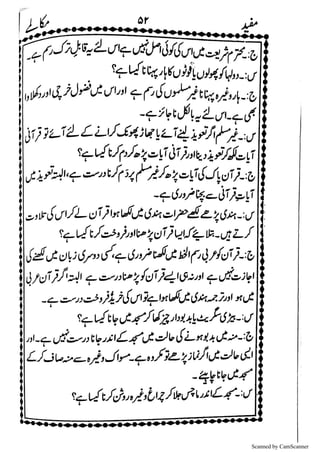 مفید ۵۲ مکالمے
ج:۔ محترم شریعت میں اس کی کوئی اصل نہیں ہے اس لئے یہ قابل ترک رسم ہے۔
س:۔ دولہا کو پھولوں یا نوٹوں کا ہار پہنانا کیسا ہے؟
ج:۔ ہار وغیرہ پہنانا غیر مسلموں کی رسم ہے اور اس میں فضول خرچی اور دکھلاوا
بھی ہے۔ اس لئے یہ بالکل ناجائز ہے۔
س:۔ غیر مسلم اگر تعویذ لینے آئے یا جھاڑ پھونک کرانے کے لئے آئے تو قرآنی
آیات لکھ کر تعویذ دینا اور قرآنی آیات پڑھ کر دم کرنا کیسا ہے؟
ج:۔ قرآن پاک کی آیات پڑھ کر غیر مسلم پر دم کرنا درست ہے، البتہ تعویذ میں
آیات قرآنی سے بچنا ضروری ہے۔
س:۔ ہندی پڑھے لکھے حضرات ہندی میں لکھا ہوا قرآن لے کر اس کی تلاوت
کرتے ہیں۔ بتلائیے کہ ایسا قرآن پڑھنا اور فروخت کرنا کیسا ہے؟
ج:۔ قرآن کو عربی رسم الخط میں لکھنا ضروری ہے، کسی دوسری زبان میں لکھنے کی
اجازت نہیں ہے اور نہ ہی ایسے قرآن کو پڑھنا درست ہے البتہ اگر قرآن عربی
میں ہو اور ترجمہ ہندی میں لکھا ہوا ہے تو اس کی خرید و فروخت درست ہے۔
س:۔ بیڑی سگریٹ یا بدبودار چیز کھا کر مسجد میں جانا کیسا ہے؟
ج:۔ منہ میں بدبو ہونے کی حالت میں مسجد کے اندر جانا درست نہیں ہے۔ اور
ایسی حالت میں اگر نماز پڑھے تو مکروہ ہے۔ مسواک وغیرہ سے منہ صاف کر کے
مسجد میں جانا چاہئے۔
س:۔ مسجد کے اندر ماچس جلا کر چراغ وغیرہ روشن کرنا کیسا ہے؟
Scanned by CamScanner